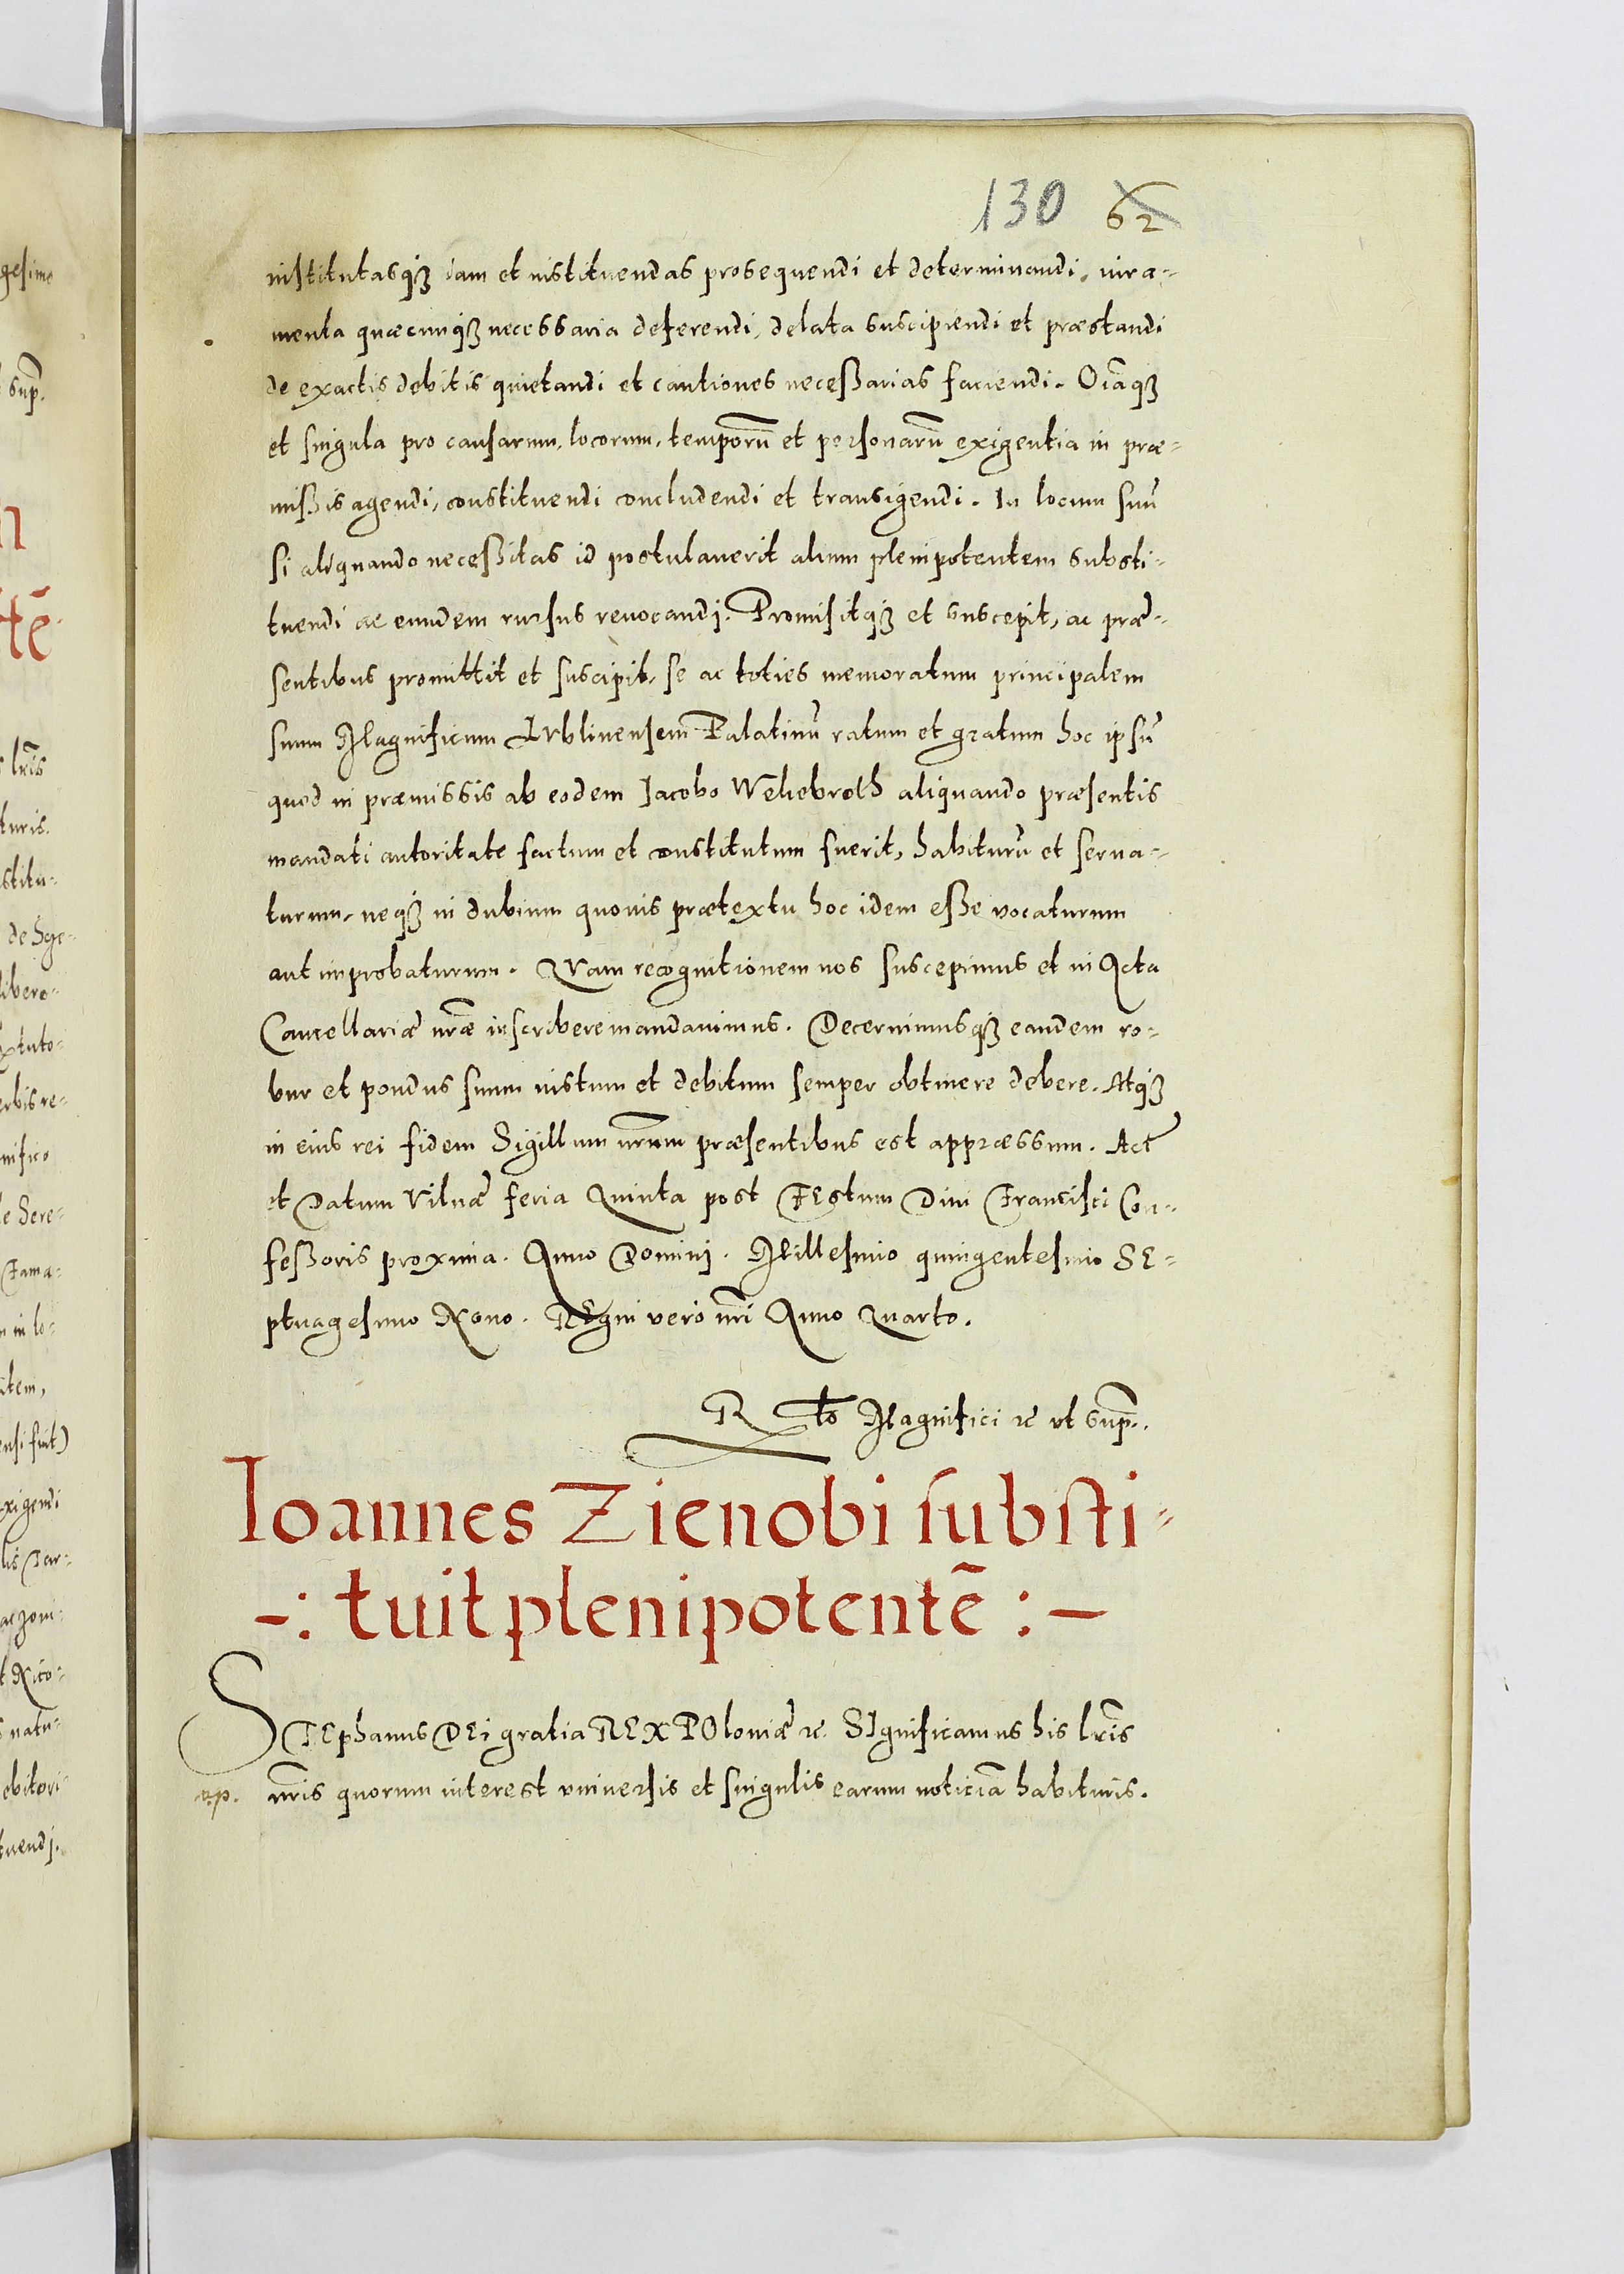 130 62
institutasq₃ iam et instituendas prosequendi et determinandi. iura-
menta quæcunq₃ necessaria deferendi, delata suscipiendi et præstandi
de exactis debitis quietandi et cautiones neceßarias faciendi. Oiāq₃
et singula pro causarum, locorum, temporū et personarū exigentia in præ-
mißis agendi, constituendi concludendi et transigendi. In locum suū
si aliquando neceßitas id postulauerit alium plenipotentem substi-
tuendi ac eundem rursus reuocandj. Promisitq₃ et suscepit, ac præ-
sentibus promittit et suscipit, se ac toties memoratum principalem
suum Magnificum Lublinensem Palatinū ratum et gratum hoc ipsū
quod in præmissis ab eodem Jacobo Weliebroth aliquando præsentis
mandati autoritate factum et constitutum fuerit, habiturū et serua-
turum, neq₃ in dubium quouis prætextu hoc idem eße vocaturum
aut improbaturum. Quam recognitionem nos suscepimus et in Acta
Cancellariæ nræ inscribere mandauimus. Decernimusq₃ eandem ro-
bur et pondus suum iustum et debitum semper obtinere debere. Atq₃
in eius rei fidem Sigillum nrum præsentibus est appræssum. Act
et Datum Vilnæ feria Quinta post FEstum Diui Francisci Con-
feßoris proxima. Anno Dominj. Millesimo quingentesimo SE-
ptuagesimo Nono. REgni vero nri Anno Quarto.
R to Magnifici ꝛc vt sup.
Ioannes Zienobi substi-
-: tuit plenipotentē :-
STEphanus DEi gratia REX POloniæ ꝛc. SIgnificamus his lris
nris quorum interest vniuersis et singulis earum noticiā habituris.